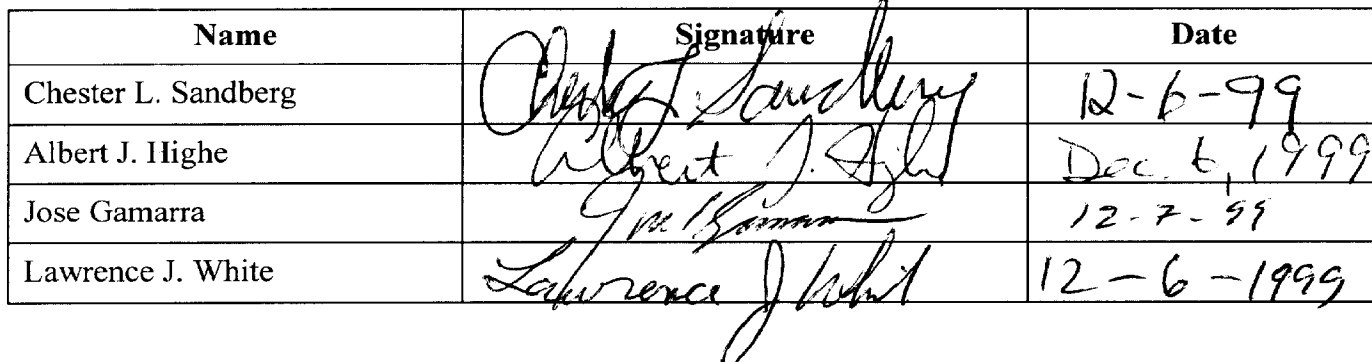 Name Signature Date
Chester L. Sandberg Chester L. Sandberg 12-6-99
Albert J. Highe Albert J. Highe Dec. 6, 1999
Jose Gamarra 12-7-99
Lawrence J. White Lawrence J White 12-6-1999